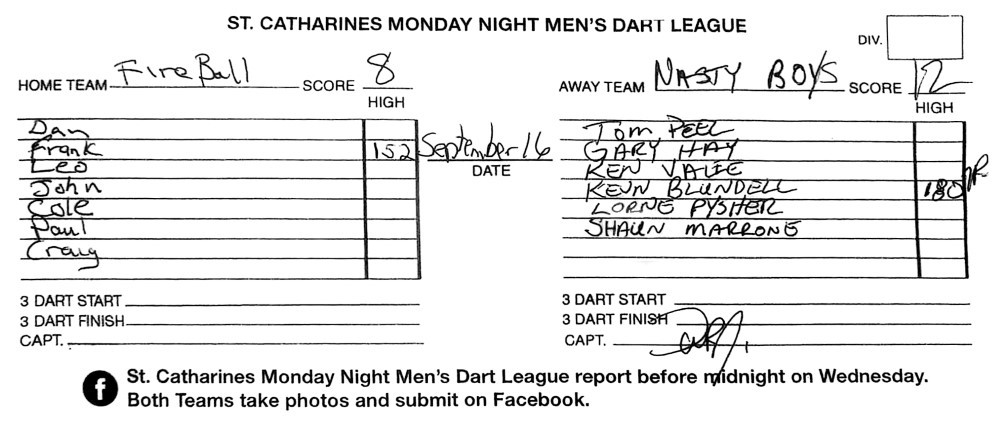 ST. CATHARINES MONDAY NIGHT MEN'S DART LEAGUE
DIV.
HOME TEAM Fire Ball SCORE 8
HIGH
AWAY TEAM NASTY BOYS SCORE 12
HIGH
Dan
Frank 152
Leo
John
Cole
Paul
Craig
September 16
DATE
TOM PEEL
GARY HAY
KEN VALIE
KEVIN BLUNDELL 180
LORNE PYSHER
SHAUN MARRONE
3 DART START
3 DART FINISH
CAPT.
3 DART START
3 DART FINISH
CAPT.
f St. Catharines Monday Night Men's Dart League report before midnight on Wednesday.
Both Teams take photos and submit on Facebook.